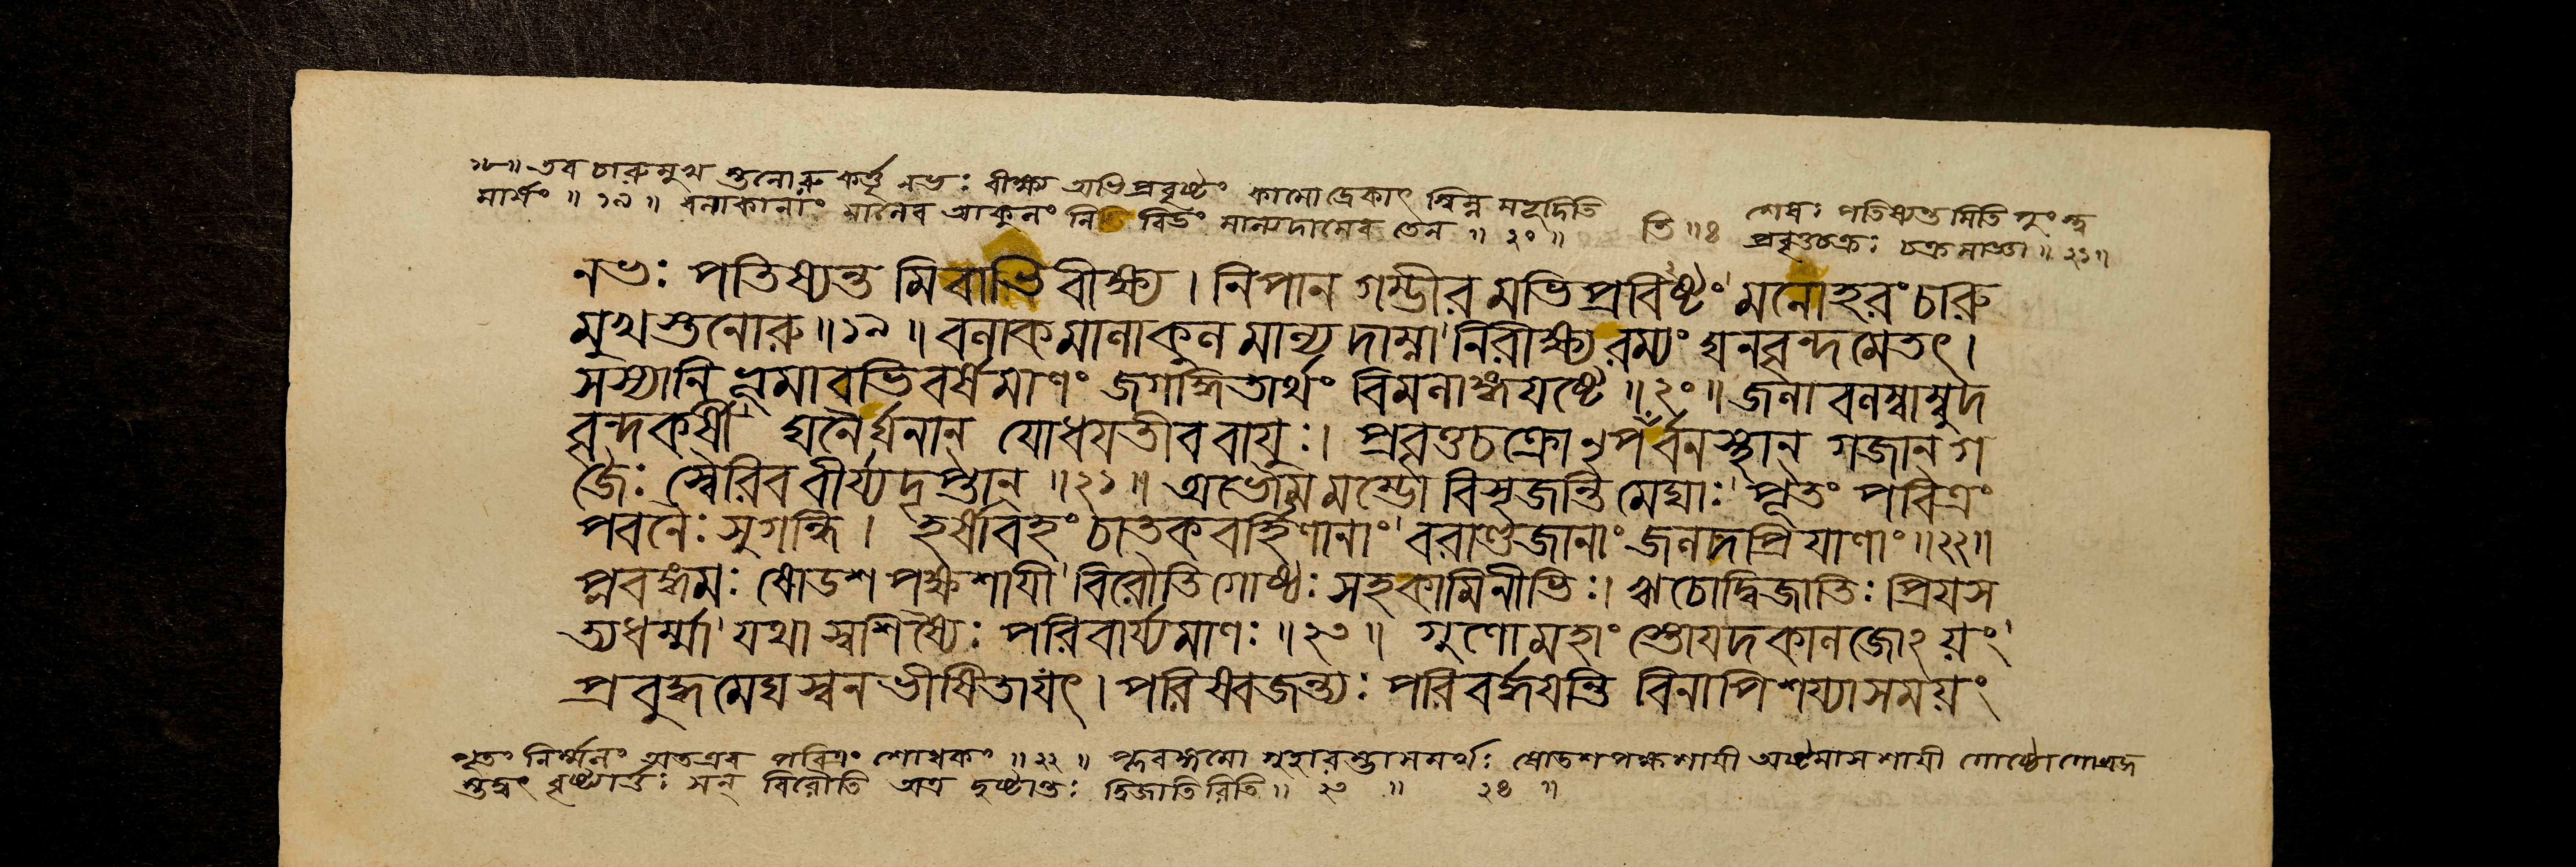 ১৮॥ তব চারুমুখ স্তনোরু কর্তৃ নভঃ বীক্ষ্য অভিপ্রবৃষ্টং কামোদ্রেকাৎ স্বিন্ন মহূদিতি শেষঃ পতিষ্যন্ত মিতি পুংস্ত্ব
মার্ষং ॥ ১৯ ॥ বলাকানাং মালৈব আকুলং নি বিডং মাল্যদামেব তেন ॥ ২০ ॥ তি ॥ ৪ প্রবৃত্তচক্রঃ চক্রমাজ্ঞা ॥ ২১॥
নভঃ পতিষ্যন্ত মিবাভি বীক্ষ্য । নিপান গম্ভীর মভিপ্রবিষ্টং মনোহরং চারু
মুখস্তনোরু ॥১৯॥ বলাকমালাকুল মাল্য দাম্না নিরীক্ষ্য রম্যং ঘনবৃন্দমেতৎ ।
সস্যানি ভূমাবভিবর্ষমাণং জগদ্ধিতার্থং বিমলাঙ্গযষ্টে ॥২০॥ জলাবলম্বাম্বুদ
বৃন্দকর্ষী ঘনৈর্ঘনান্ যোধযতীব বাযুঃ। প্রবৃত্তচক্রো নৃপর্বনস্থান্ গজান্ গ
জৈঃ স্বৈরিব বীর্য্যদৃপ্তান্ ॥২১॥ অভৌমমম্ভো বিসৃজন্তি মেঘাঃ পূতং পবিত্রং
পবনৈঃ সুগন্ধি । হর্ষাবহং চাতকবর্হিণানাং বরাণ্ডজানাং জলদপ্রিযাণাং ॥২২॥
প্লবঙ্গমঃ ষোডশ পক্ষশাযী বিরৌতি গোষ্ঠঃ সহকামিনীভিঃ। ঋচো দ্বিজাতিঃ প্রিযস
ত্যধর্ম্মা যথা স্বশিষ্যৈঃ পরিবার্য্যমাণঃ ॥২৩॥ গুণো মহাং স্তোযদকালজোঽয়ং
প্রবুদ্ধমেঘস্বন ভীষিতাযৎ । পরিষ্বজন্ত্যঃ পরিবর্দ্ধযন্তি বিনাপি শয্যাসময়ং
পূতং নির্ম্মলং অতএব পবিত্রং শোধকং ॥ ২২ ॥ প্লবঙ্গমো মুহারম্ভাসমর্থঃ ষোডশপক্ষশাযী অষ্টমাসশাযী গোষ্ঠো
স্তদ্বৎ বৃষ্ট্যার্ত্তঃ সন্ বিরৌতি অত্র দৃষ্টান্তঃ দ্বিজাতিরিতি ॥ ২৩ ॥ ২৪ ॥